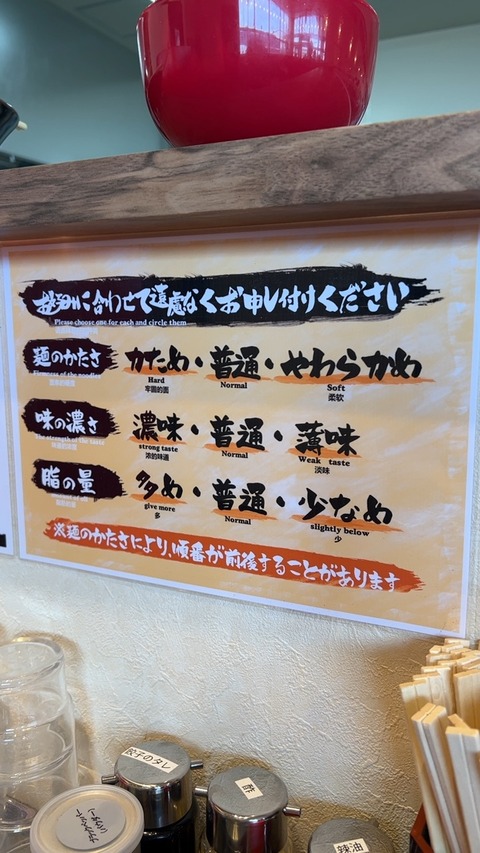 お好みに合わせて遠慮なくお申し付けください
Please choose one for each and circle them
麺のかたさ かため・普通・やわらかめ
Firmness of the noodles Hard Normal Soft
牢固的面 柔软
味の濃さ 濃味・普通・薄味
The strength of the taste strong taste Normal Weak taste
浓的味道 淡味
脂の量 多め・普通・少なめ
give more Normal slightly below
多 少
※麺のかたさにより、順番が前後することがあります
餃子のタレ
酢
辣油